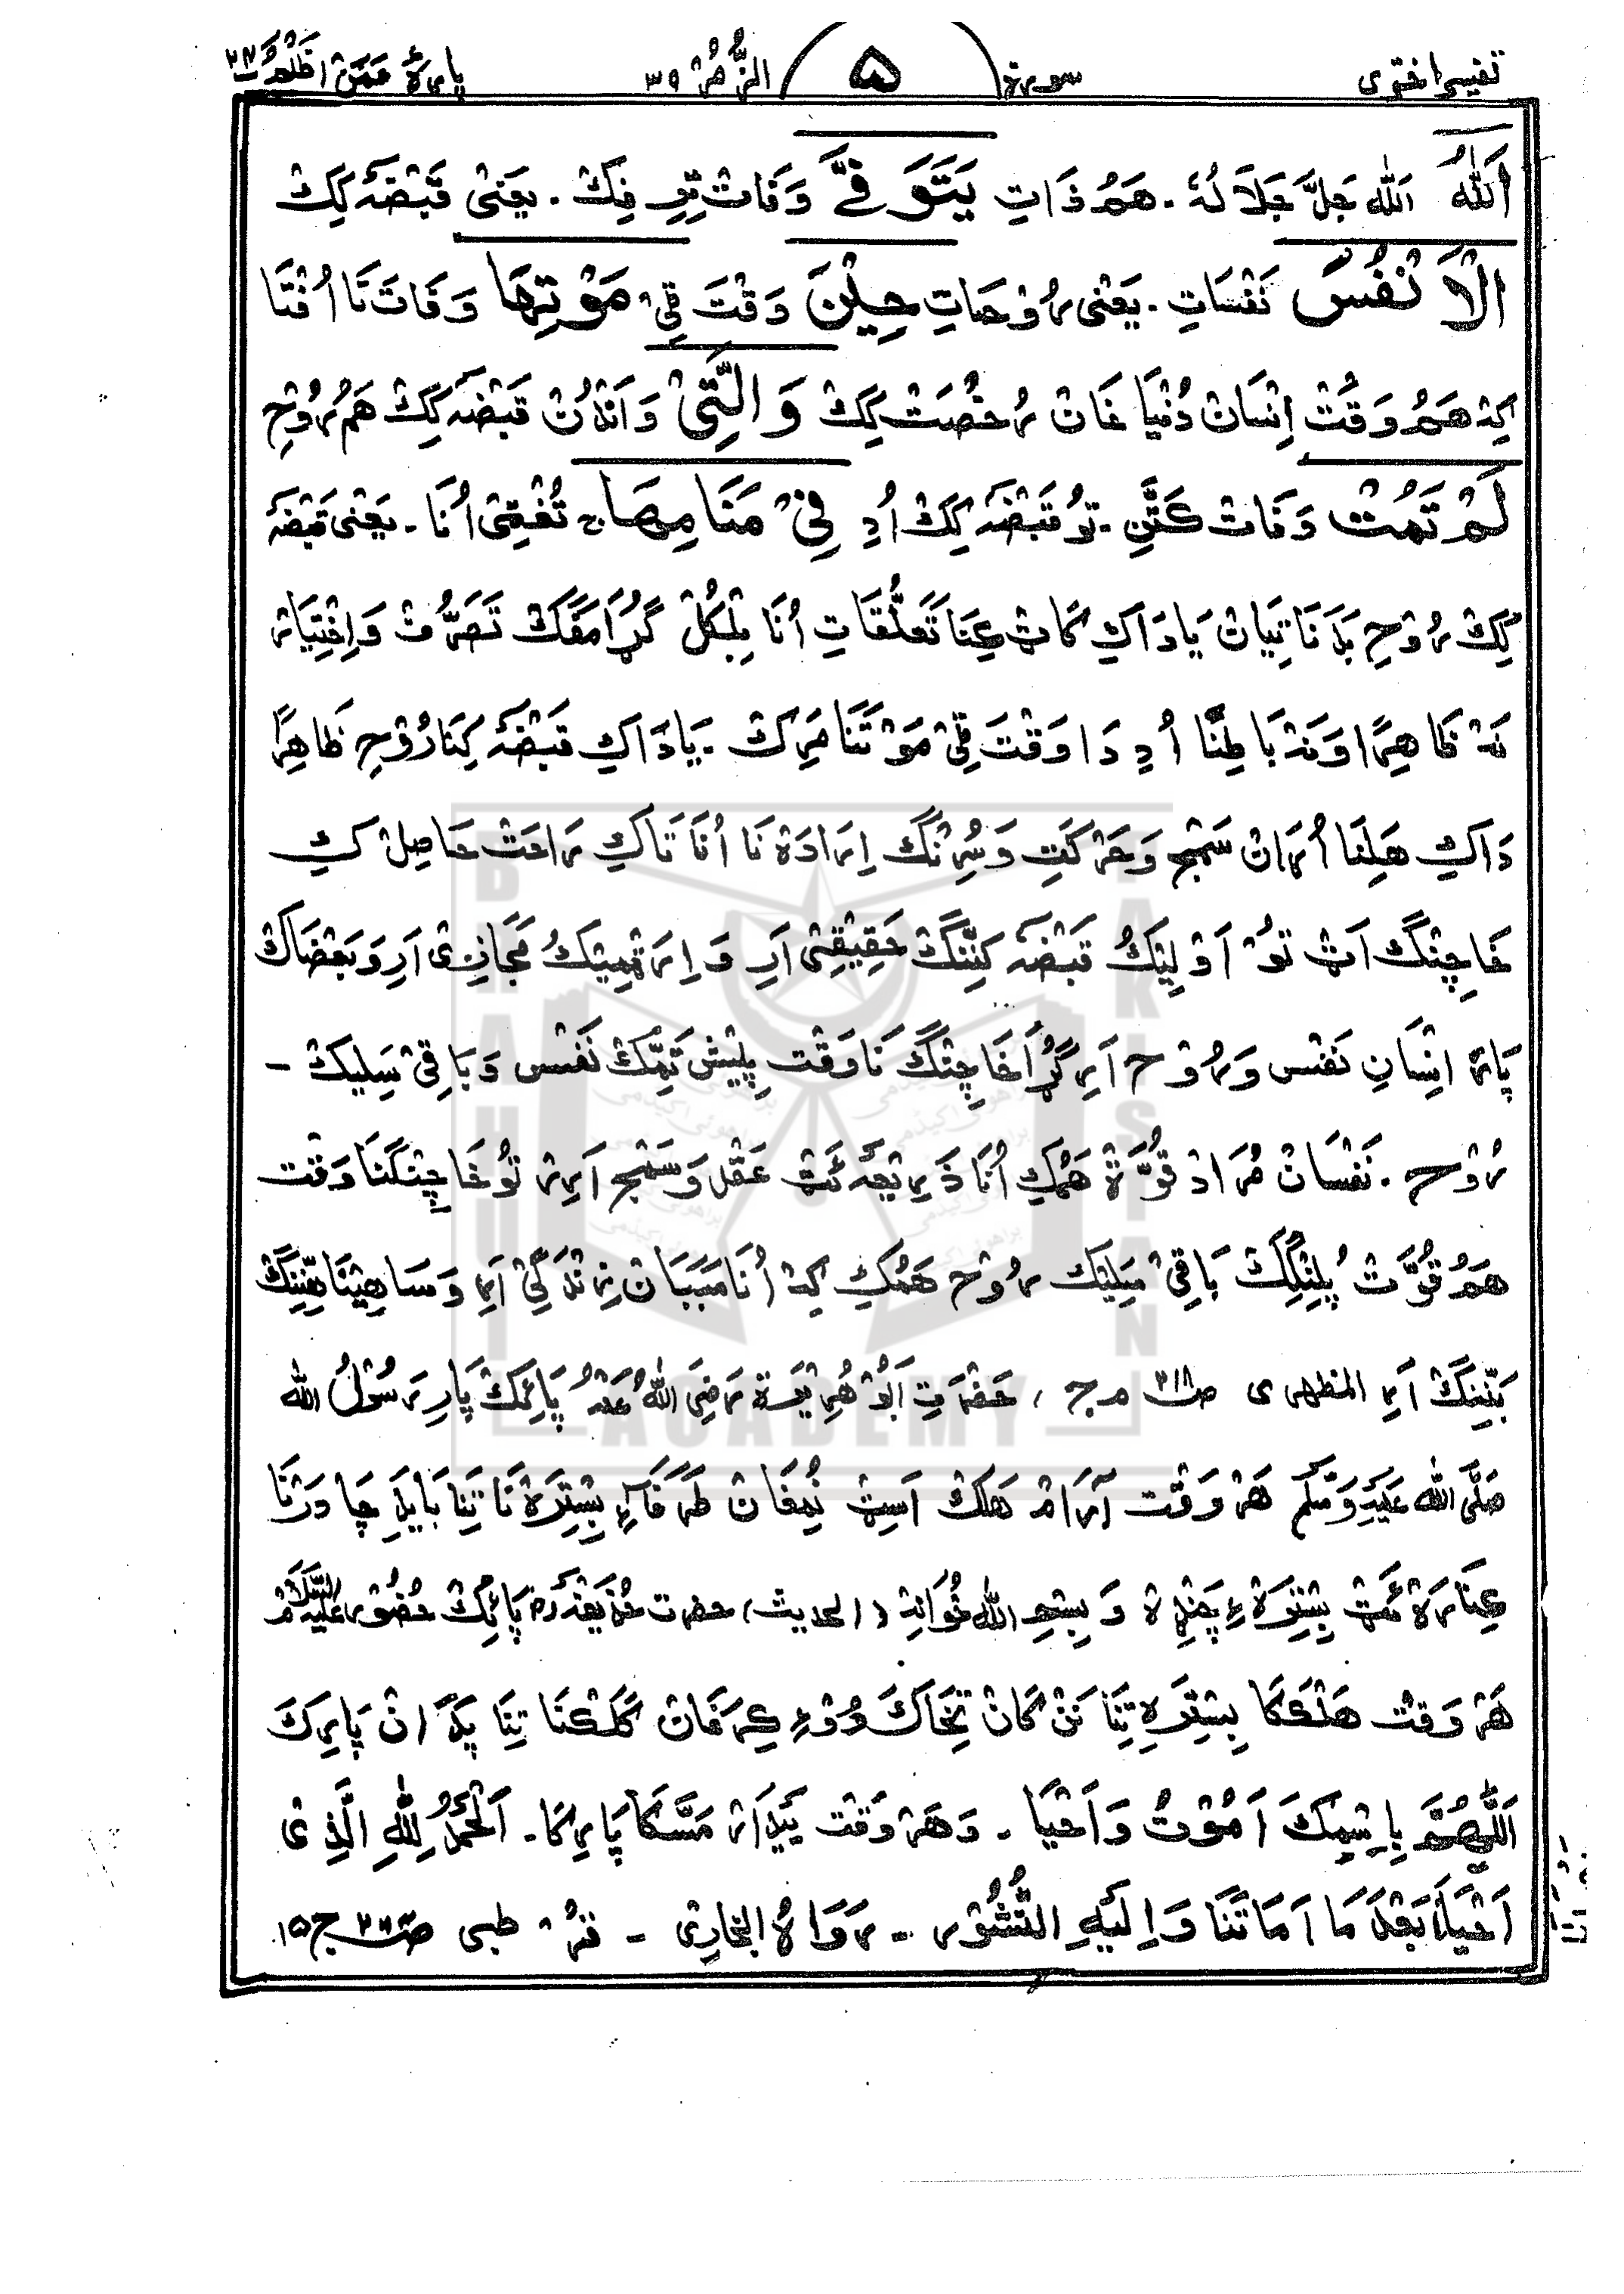 تفسیر اختری سورة ۵ الزُّمَرْ ۳۹ پارۀ فَمَنْ اَظْلَمُ ۲۴
اَللّٰهُ اَللّٰه جَلَّ جَلَالُهٗ۔ هَمُ ذَاتِ یَتَوَفَّی وَفَاتْ تِرِفِکْ۔ یَعْنِیْ قَبْضَهٔ کِکْ
الْاَنْفُسَ نَفْسَاتِ۔ یَعْنِیْ رُوْحَاتِ حِیْنَ وَقْتَ قِیْ مَوْتِهَا وَفَاتَ نَا اُفْتَا
کِهْ هَمُ وَقْتْ اِنْسَانْ دُنْیَا غَانْ رُخْصَتْ کِکْ وَالَّتِیْ وَاَنْدُنْ قَبْضَهٔ کِکْ هَمُ رُوْحِ
لَمْ تَمُتْ وَفَاتْ کَتَّنِ۔ تَوْ قَبْضَهٔ کِکْ اُدِ فِیْ مَنَامِهَا ج تُغْ قِیْ اُنَا۔ یَعْنِیْ قَبْضَهٔ
کِکْ رُوْحِ بَدَنَا نِیَانْ یَا دَاکِ کَانْ عِنَا تَعَلُّقَاتِ اُنَا بِلْکُلْ گُڑَا مَفَّکْ تَصَرُّفْ وَاِخْتِیَارْ
نَهْ ظَاهِرًا وَنَهْ بَاطِنًا اُدِ دَا وَقْتَ قِیْ مَوْتَنَا مَرِکْ۔ یَا دَاکِ قَبْضَهٔ کِنَا رُوْحِ ظَاهِرًا
دَاکِ هَلِنَا اُرَانْ سَمْجِ وَحَرْکَتِ وَسُرِنْگ اِرَادَةْ نَا اُنَا تَاکِ رَاحَتْ حَاصِلْ کِ
خَاچِنْگ اَٹْ تَوْ اَوْلِیْکُ قَبْضَهٔ کِنَّنْگْ حَقِیْقِیْ اَرِ وَاِرَٹْمِیْکُ مَجَازِیْ اَرِ وَبَعْضَاکْ
پَارَهْ اِنْسَانِ نَفْس وَرُوْح اَرِ گُڑَا خَاچِنْگ نَا وَقْت پِیْش تَمِّکْ نَفْس وَبَاقِیْ سَلِیکْ -
رُوْح۔ نَفْسَانْ مُرَادْ قُوَّةْ هَمُکِ اُنَا ذَرِیْعَهْ ٹَٹْ عَقْل وَسَمْج اَرِرْ تَوْ خَاچِنْگنَا وَقْت
هَمُ قُوَّتْ پِلِنْگِکْ بَاقِیْ سَلِیْک رُوْح هَمُکِ کِهْ اُنَا سَبَبَانْ زِنْدَگِیْ اَرِ وَسَاهِیْنَا هِنِّنِگْ
بَنِّنِگْ اَرِ المظهری ص۳۱۸ ج حَضْرَتِ اَبُوْ هُرَیْرَةْ رَضِیَ اللّٰهُ عَنْهُ پَائِکْ پَارِ رَسُوْلُ اللّٰه
صَلَّی اللّٰهُ عَلَیْهِ وَسَلَّمْ هَرْ وَقْت آرَامْ هَلِکْ اَسِٹْ نُمْغَانْ طَرَفَاءِ بِسْتِرَةْ نَا تِنَا بَایَدِ چَادَرْنَا
عِنَارَةْ ٹَٹْ بِسْتِرَةْ ءِ چَنْڈِهْ وَبِسْمِ اللّٰه خُوَانِهْ (الحدیث) حضرت حُذَیْفَهْ رض پَائِکْ حُضُوْر عَلَیْهِ السَّلَامْ
هَرْ وَقْتْ هَلْکَکَا بِسْتِرَهِ تِنَا نَنْ کَانْ تِخَاکَ دُوْءِ کِرَغَانْ کَلْکْنَا تِنَا پَدَانْ پَارِکَ
اَللّٰهُمَّ بِاسْمِکَ اَمُوْتُ وَاَحْیَا۔ وَهَرْ وَقْت بَیْدَارْ مَسَّکَا پَارِکَا۔ اَلْحَمْدُ لِلّٰهِ الَّذِیْ
اَحْیَانَا بَعْدَ مَا اَمَاتَنَا وَاِلَیْهِ النُّشُوْر ۔ رَوَاهُ الْبُخَارِیْ - قرطبی ج۱۵